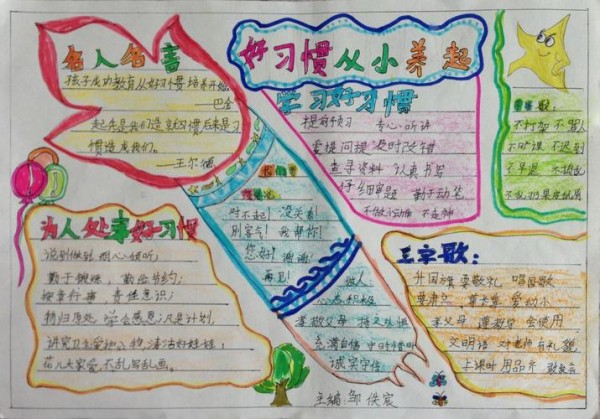 名人名言
孩子成功教育从好习惯培养开始。
巴金
起先是我们造就习惯后来是习
惯造成我们。
王尔德
好习惯从小养起
学习好习惯
提前预习 专心听讲
爱提问提 及时改错
查寻资料 认真书写
仔细审题 勤于动笔
不做小动作 不走神
不打架 不骂人
不旷课 不迟到
不早退
不乱扔果皮纸屑
对不起! 没关系!
别客气! 我帮你!
您好! 谢谢!
再见!
为人处事好习惯
说到做到 用心倾听;
勤于锻炼, 勤俭节约;
按章行事 责任意识;
物归原处 学会感恩;凡是计划,
讲究卫生爱地人物,清洁好娃娃;
花儿大家爱,不乱写乱画。
做人
孝敬父母
充满自信
诚实守信
三字歌:
升国旗 要敬礼 唱国歌
尊老人 爱幼小
孝父母 遵教导 会使用
文明语 对老师 有礼貌
上课时 用品齐
主编:邹佚宸